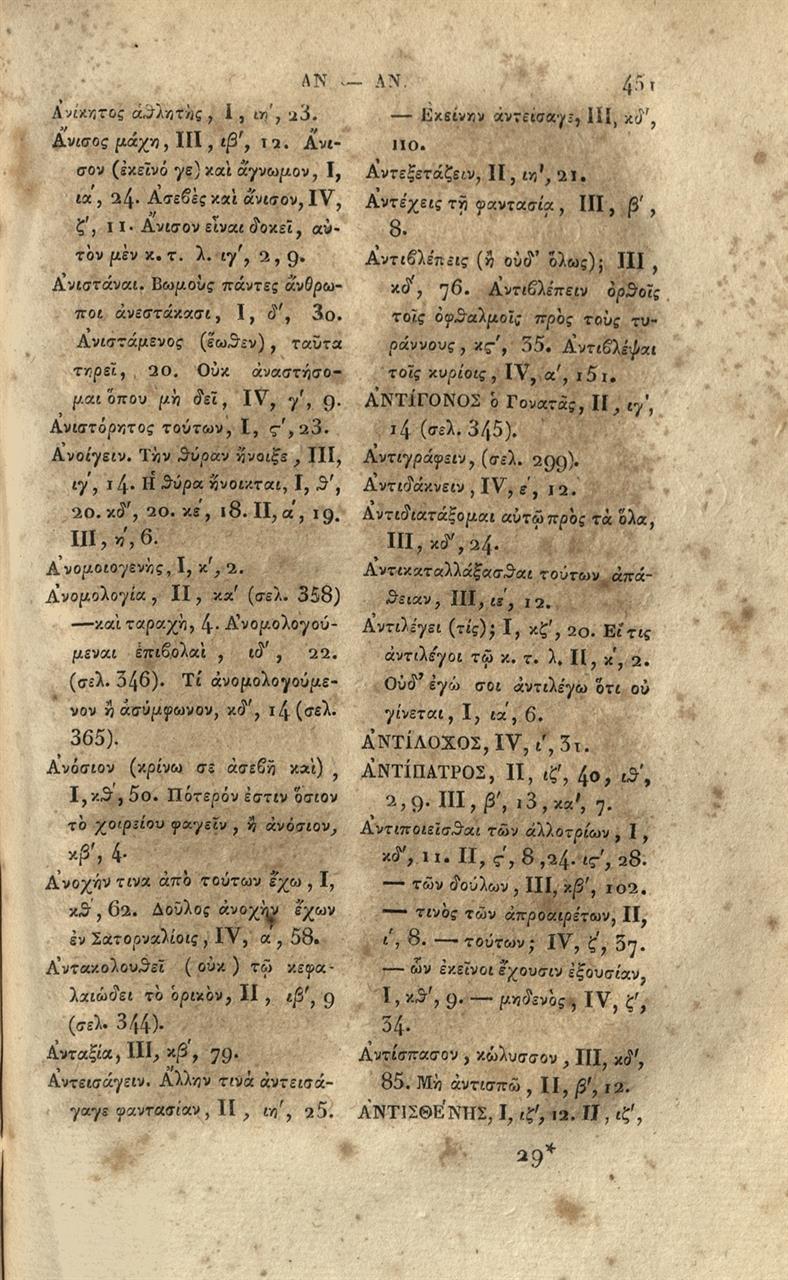 ΑΝ — ΑΝ. 451
Ἀνίκητος ἀθλητὴς, I, ιη', 23.
Ἄνισος μάχη, III, ιβ', 12. Ἄνι-
σον (ἐκεῖνό γε) καὶ ἄγνωμον, I,
ια', 24. Ἀσεβὲς καὶ ἄνισον, IV,
ζ', 11. Ἄνισον εἶναι δοκεῖ, αὐ-
τὸν μὲν κ. τ. λ. ιγ', 2, 9.
Ἀνιστάναι. Βωμοὺς πάντες ἄνθρω-
ποι ἀνεστάκασι, I, δ', 30.
Ἀνιστάμενος (ἕωθεν), ταῦτα
τηρεῖ, 20. Οὐκ ἀναστήσο-
μαι ὅπου μὴ δεῖ, IV, γ', 9.
Ἀνιστόρητος τούτων, I, ς', 23.
Ἀνοίγειν. Τὴν θύραν ἤνοιξε, III,
ιγ', 14. Ἡ θύρα ἤνοικται, I, θ',
20. κδ', 20. κέ, 18. II, α', 19.
III, η', 6.
Ἀνομοιογενὴς, I, κ', 2.
Ἀνομολογία, II, κα' (σελ. 358)
—καὶ ταραχὴ, 4. Ἀνομολογού-
μεναι ἐπιβολαὶ, ιδ', 22.
(σελ. 346). Τί ἀνομολογούμε-
νον ἢ ἀσύμφωνον, κδ', 14 (σελ.
365).
Ἀνόσιον (κρίνω σε ἀσεβῆ καὶ),
I, κθ', 50. Πότερόν ἐστιν ὅσιον
τὸ χοιρείου φαγεῖν, ἢ ἀνόσιον,
κβ', 4.
Ἀνοχήν τινα ἀπὸ τούτων ἔχω, I,
κθ', 62. Δοῦλος ἀνοχὴν ἔχων
ἐν Σατορναλίοις, IV, α', 58.
Ἀντακολουθεῖ (οὐκ) τῷ κεφα-
λαιώδει τὸ ὁρικὸν, II, ιβ', 9
(σελ. 344).
Ἀνταξία, III, κβ', 79.
Ἀντεισάγειν. Ἄλλην τινὰ ἀντεισά-
γαγε φαντασίαν, II, ιη', 25.
— Ἐκείνην ἀντείσαγε, III, κδ',
110.
Ἀντεξετάζειν, II, ιη', 21.
Ἀντέχεις τῇ φαντασίᾳ, III, β',
8.
Ἀντιβλέπεις (ἢ οὐδ' ὅλως); III,
κδ', 76. Ἀντιβλέπειν ὀρθοῖς
τοῖς ὀφθαλμοῖς πρὸς τοὺς τυ-
ράννους, κς', 35. Ἀντιβλέψαι
τοῖς κυρίοις, IV, α', 151.
ἈΝΤΙΓΟΝΟΣ ὁ Γονατᾶς, II, ιγ',
14 (σελ. 345).
Ἀντιγράφειν, (σελ. 299).
Ἀντιδάκνειν, IV, ε', 12.
Ἀντιδιατάξομαι αὐτῷ πρὸς τὰ ὅλα,
III, κδ', 24.
Ἀντικαταλλάξασθαι τούτων ἀπά-
θειαν, III, ιε', 12.
Ἀντιλέγει (τίς); I, κζ', 20. Εἴ τις
ἀντιλέγοι τῷ κ. τ. λ. II, κ', 2.
Οὐδ' ἐγώ σοι ἀντιλέγω ὅτι οὐ
γίνεται, I, ια', 6.
ἈΝΤΙΛΟΧΟΣ, IV, ι', 31.
ἈΝΤΙΠΑΤΡΟΣ, II, ιζ', 40, ιθ',
2, 9. III, β', 13, κα', 7.
Ἀντιποιεῖσθαι τῶν ἀλλοτρίων, I,
κδ', 11. II, ς', 8, 24. ις', 28.
— τῶν δούλων, III, κβ', 102.
— τινὸς τῶν ἀπροαιρέτων, II,
ι', 8. — τούτων; IV, ζ', 37.
— ὧν ἐκεῖνοι ἔχουσιν ἐξουσίαν,
I, κθ', 9. — μηδενὸς, IV, ζ',
34.
Ἀντίσπασον, κώλυσσον, III, κδ',
85. Μὴ ἀντισπῶ, II, β', 12.
ἈΝΤΙΣΘΕΝΗΣ, I, ιζ', 12. II, ιζ',
29*